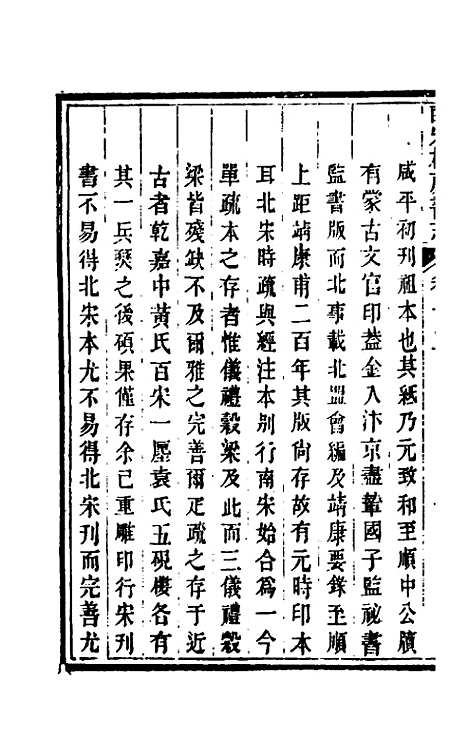 咸平初刊祖本也其紙乃元致和至順中公牘
有蒙古文官印葢金入汴京盡輦國子監祕書
監書版而北事載北盟會編及靖康要錄至順
上距靖康甫二百年其版尙存故有元時印本
耳北宋時疏與經注本別行南宋始合爲一今
單疏本之存者惟儀禮穀梁及此而三儀禮穀
梁皆殘缺不及爾雅之完善爾疋疏之存于近
古者乾嘉中黃氏百宋一廛袁氏五硯樓各有
其一兵燹之後碩果僅存余已重雕印行宋刋
書不易得北宋本尤不易得北宋刊而完善尤